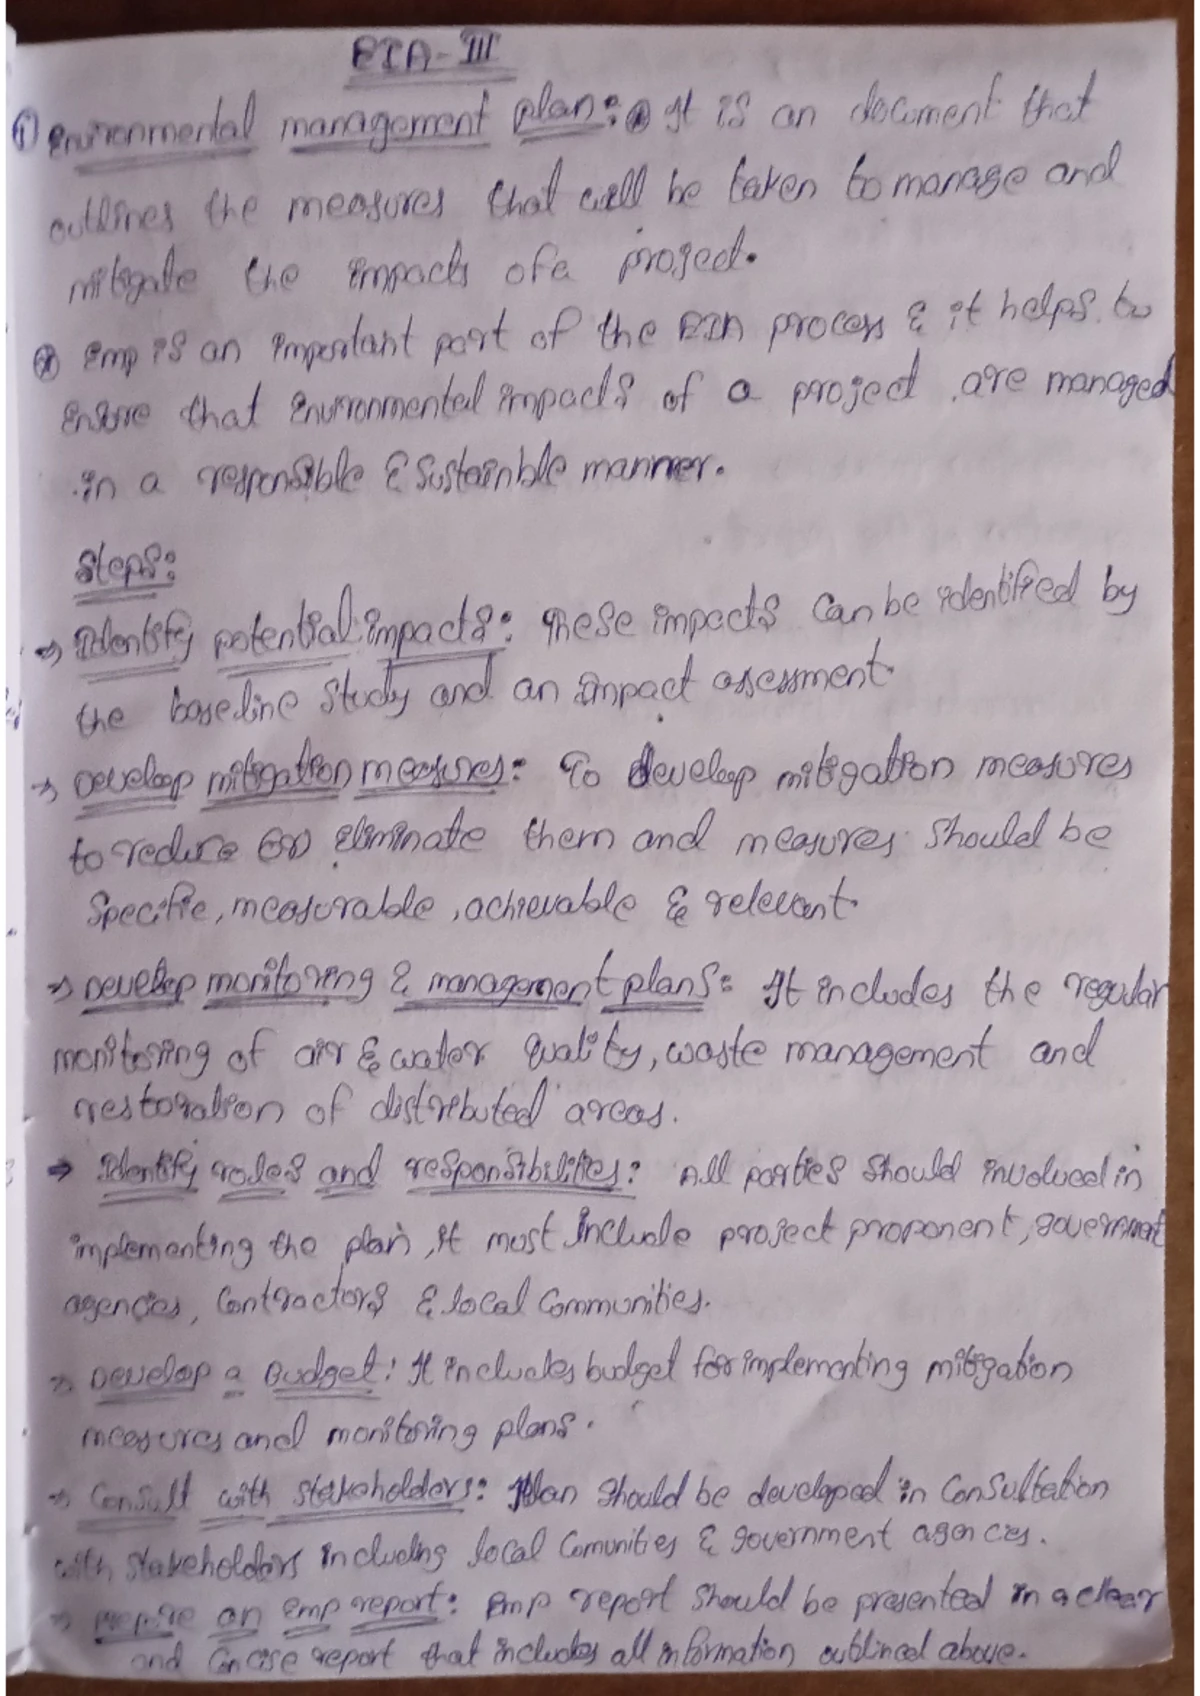 EIA-III
① Environmental management plan:⊛ It is an document that
outlines the measures that will be taken to manage and
mitigate the impacts of a project.
⊛ Emp is an important part of the EIA process & it helps to
ensure that environmental impacts of a project are managed
in a responsible & sustainble manner.
Steps:
→ Identify potential impacts: These impacts can be identified by
the baseline study and an impact assessment.
→ Develop mitigation measures: To develop mitigation measures
to reduce (or) eliminate them and measures should be
specific, measurable, achievable & relevant.
→ Develop monitoring & management plans: It includes the regular
monitoring of air & water quality, waste management and
restoration of distributed areas.
→ Identify roles and responsibilities: All parties should involved in
implementing the plan, it must include project proponent, government
agencies, contractors & local communities.
→ Develop a Budget: It includes budget for implementing mitigation
measures and monitoring plans.
→ Consult with stakeholders: Plan should be developed in consultation
with stakeholders including local comunities & government agencies.
→ prepare an emp report: Emp report should be presented in a clear
and concise report that includes all information outlined above.